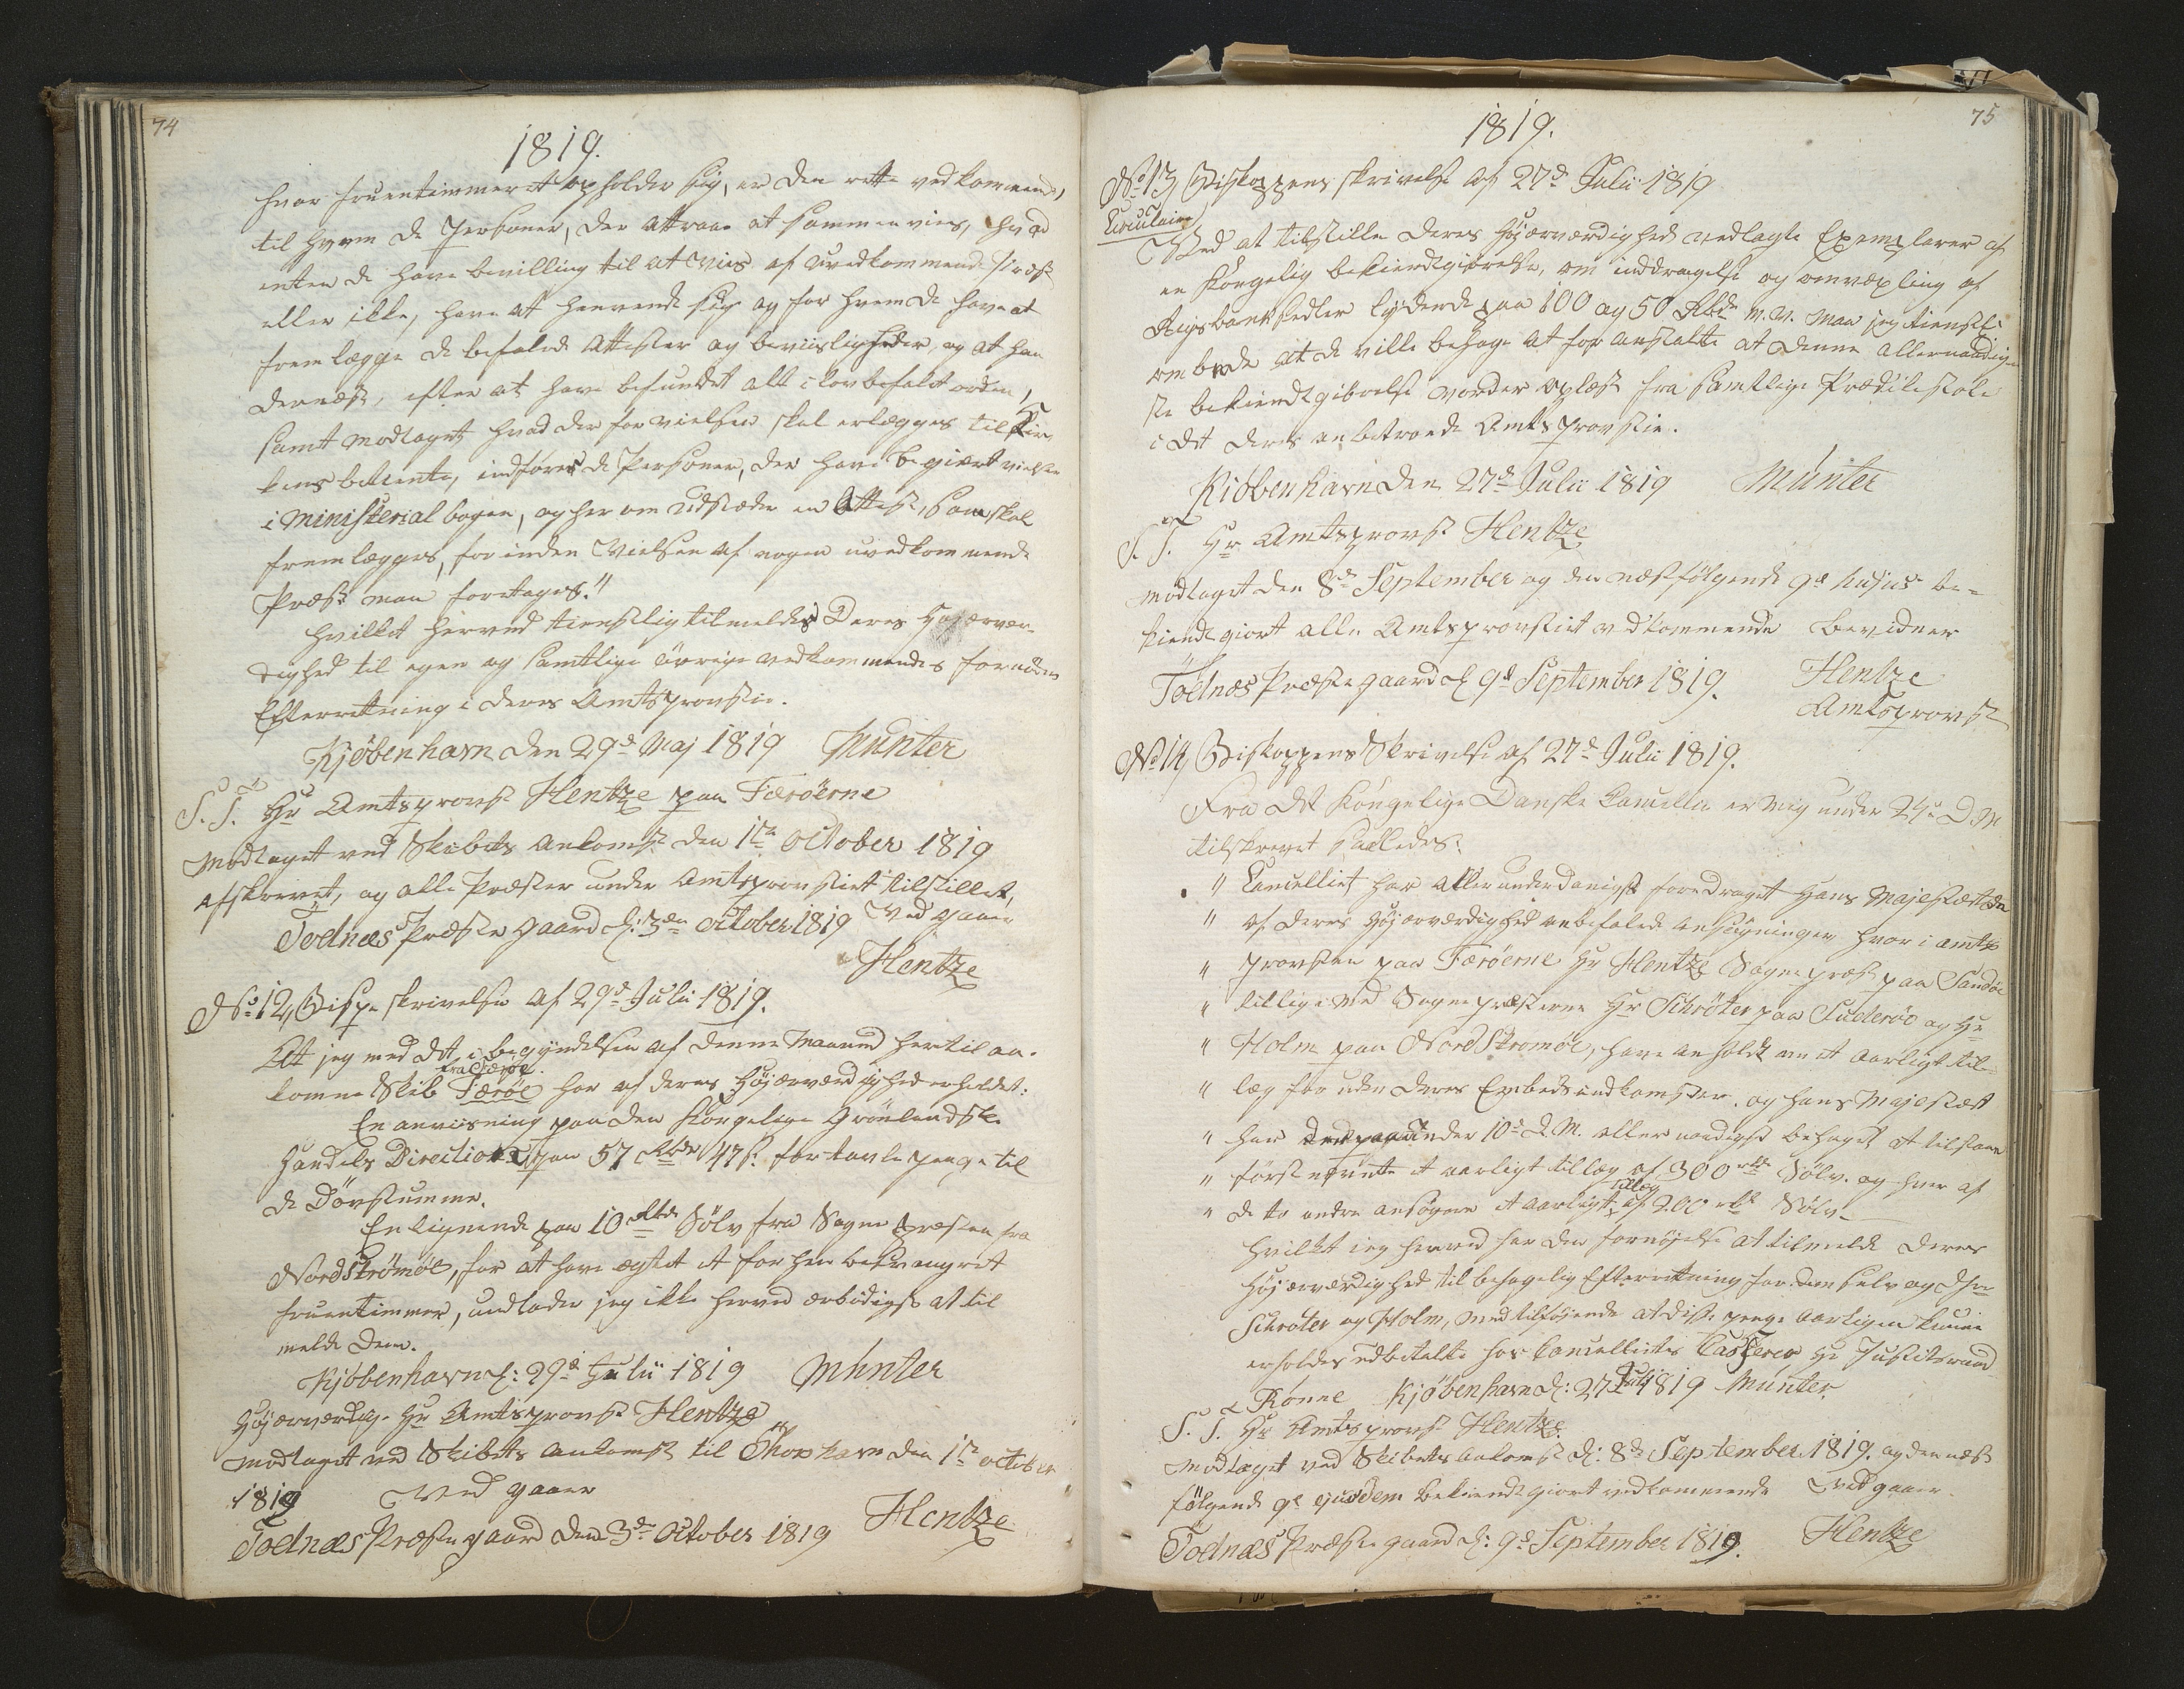 74
1819.
hvor fruentimmeret opholder sig, er den rette vedkommende,
til hvem de Personer, der attraae at sammenvies, hvad
enten de have bevilling til at vies af uvedkommende Præst
eller ikke, have at henvende sig og for hvem de have at
fremlægge de befalede Attester og beviisligheder, og at han
dernæst, efter at have befundet alt i lovbefalet orden,
samt modtaget hvad der for vielsen skal erlægges til Kir-
kens betiente, indfører de Personer, der have begiært vielse
i Ministerial bogen, og her om udstæder en Attest, som skal
fremlægges, forinden Vielsen af nogen uvedkommende
Præst maa foretages."
Hvilket herved tienstlig tilmeldes Deres Højærvær-
dighed til egen og samtlige øvrige vedkommendes fornødne
Efterretning i Deres Amtsprovstie.
Kjøbenhavn den 29d Maj 1819 Münter
S. T. Hr Amtsprovst Hentze paa Færöerne
Modtaget ved Skibets Ankomst den 1te October 1819
Afskrevet, og alle Præster under Amtsprovstiet tilstillet,
Todnæs Præstegaard d: 3die October 1819 Ved gaaer
Hentze
No 12, Bispe skrivelse af 29d Julii 1819.
At jeg med det, i begyndelsen af denne Maaned hertil an-
fra Færöe
komne Skib Færöe har af Deres Højærværdighed erholdet:
En anviisning paa den Kongelige Grönlandske
Handels Direction paa 57 Rbd 47 s. for tavle penge til
de Døvstumme.
En lignende paa 10 Rbd Sölv fra Sogne Præsten fra
NordStrömöe, for at have ægtet et forhen besvangret
fruentimmer, undlader jeg ikke herved ærbödigst at til
melde Dem.
Kjöbenhavn d: 29d Julii 1819 Münter
Højærværdige Hr Amtsprovst Hentze
Modtaget ved Skibets Ankomst til Thorshavn den 1te october
1819 Ved gaaer
Todnæs Præstegaard den 3die October 1819 Hentze
75
1819.
No 13 Biskoppens skrivelse af 27d Julii 1819
Circulaire
Ved at tilstille Deres Højærværdighed vedlagte Exemplarer af
en Kongelig bekiendtgiörelse, om inddragelse og omvexling af
Rigsbanksedler lydende paa 100 og 50 Rbd m. v. maa jeg tienstl:
ombede at De ville behage at foranstalte at denne allernaadig-
ste bekiendtgiörelse vorder oplæst fra samtlige Prædikestole
i det Deres anbetroede Amtsprovstie.
Kiöbenhavn den 27d Julii 1819 Münter
S. T. Hr Amtsprovst Hentze
modtaget den 8de September og den næstfölgende 9d hujus be-
kiendtgiort alle Amtsprovstiet vedkommende bevidner
Todnæs Præstegaard d 9d September 1819. Hentze
Amtsprovst
No 14, Biskoppens Skrivelse af 27d Julii 1819.
Fra det Kongelige Danske Cancellie er mig under 24d D. M
tilskrevet saaledes:
" Cancelliet har allerunderdanigst foredraget Hans Majestæt den
" af Deres Højærværdighed anbefalede ansögninger hvori amts
" provsten paa Færöerne Hr Hentze Sognepræst paa Sandöe
" tillige med Sognepræsterne Hr Schröter paa Suderöe og Hr
" Holm paa NordStromöe, have anholdt om et aarligt til-
" læg foruden deres Embedsindkomster, og hans Majestæt
" har under 10d D. M. allernaadigst behaget at tilstaae
" förstnævnte et aarligt tillæg af 300 rbd Sölv. og hver af
tillæg
" de to andre ansögere et aarligt af 200 rbd Sölv
Hvilket ieg herved har den fornöjelse at tilmelde Deres
Höjærværdighed til behagelig Efterretning for dem selv og Dhr
Schroter og Holm, med tilföjende at disse penge aarligen kunne
erholdes udbetalte hos Cancelliets Casserer Hr Justitsraad
Rönne Kjöbenhavn d: 27 Julii 1819 Münter
S. T. Hr Amtsprovst Hentze.
Modtaget ved Skibets ankomst d: 8de September 1819. og den næst
fölgende 9d ejusdem bekiendtgiort vedkommende Ved gaaer.
Todnæs Præstegaard d: 9d September 1819. Hentze